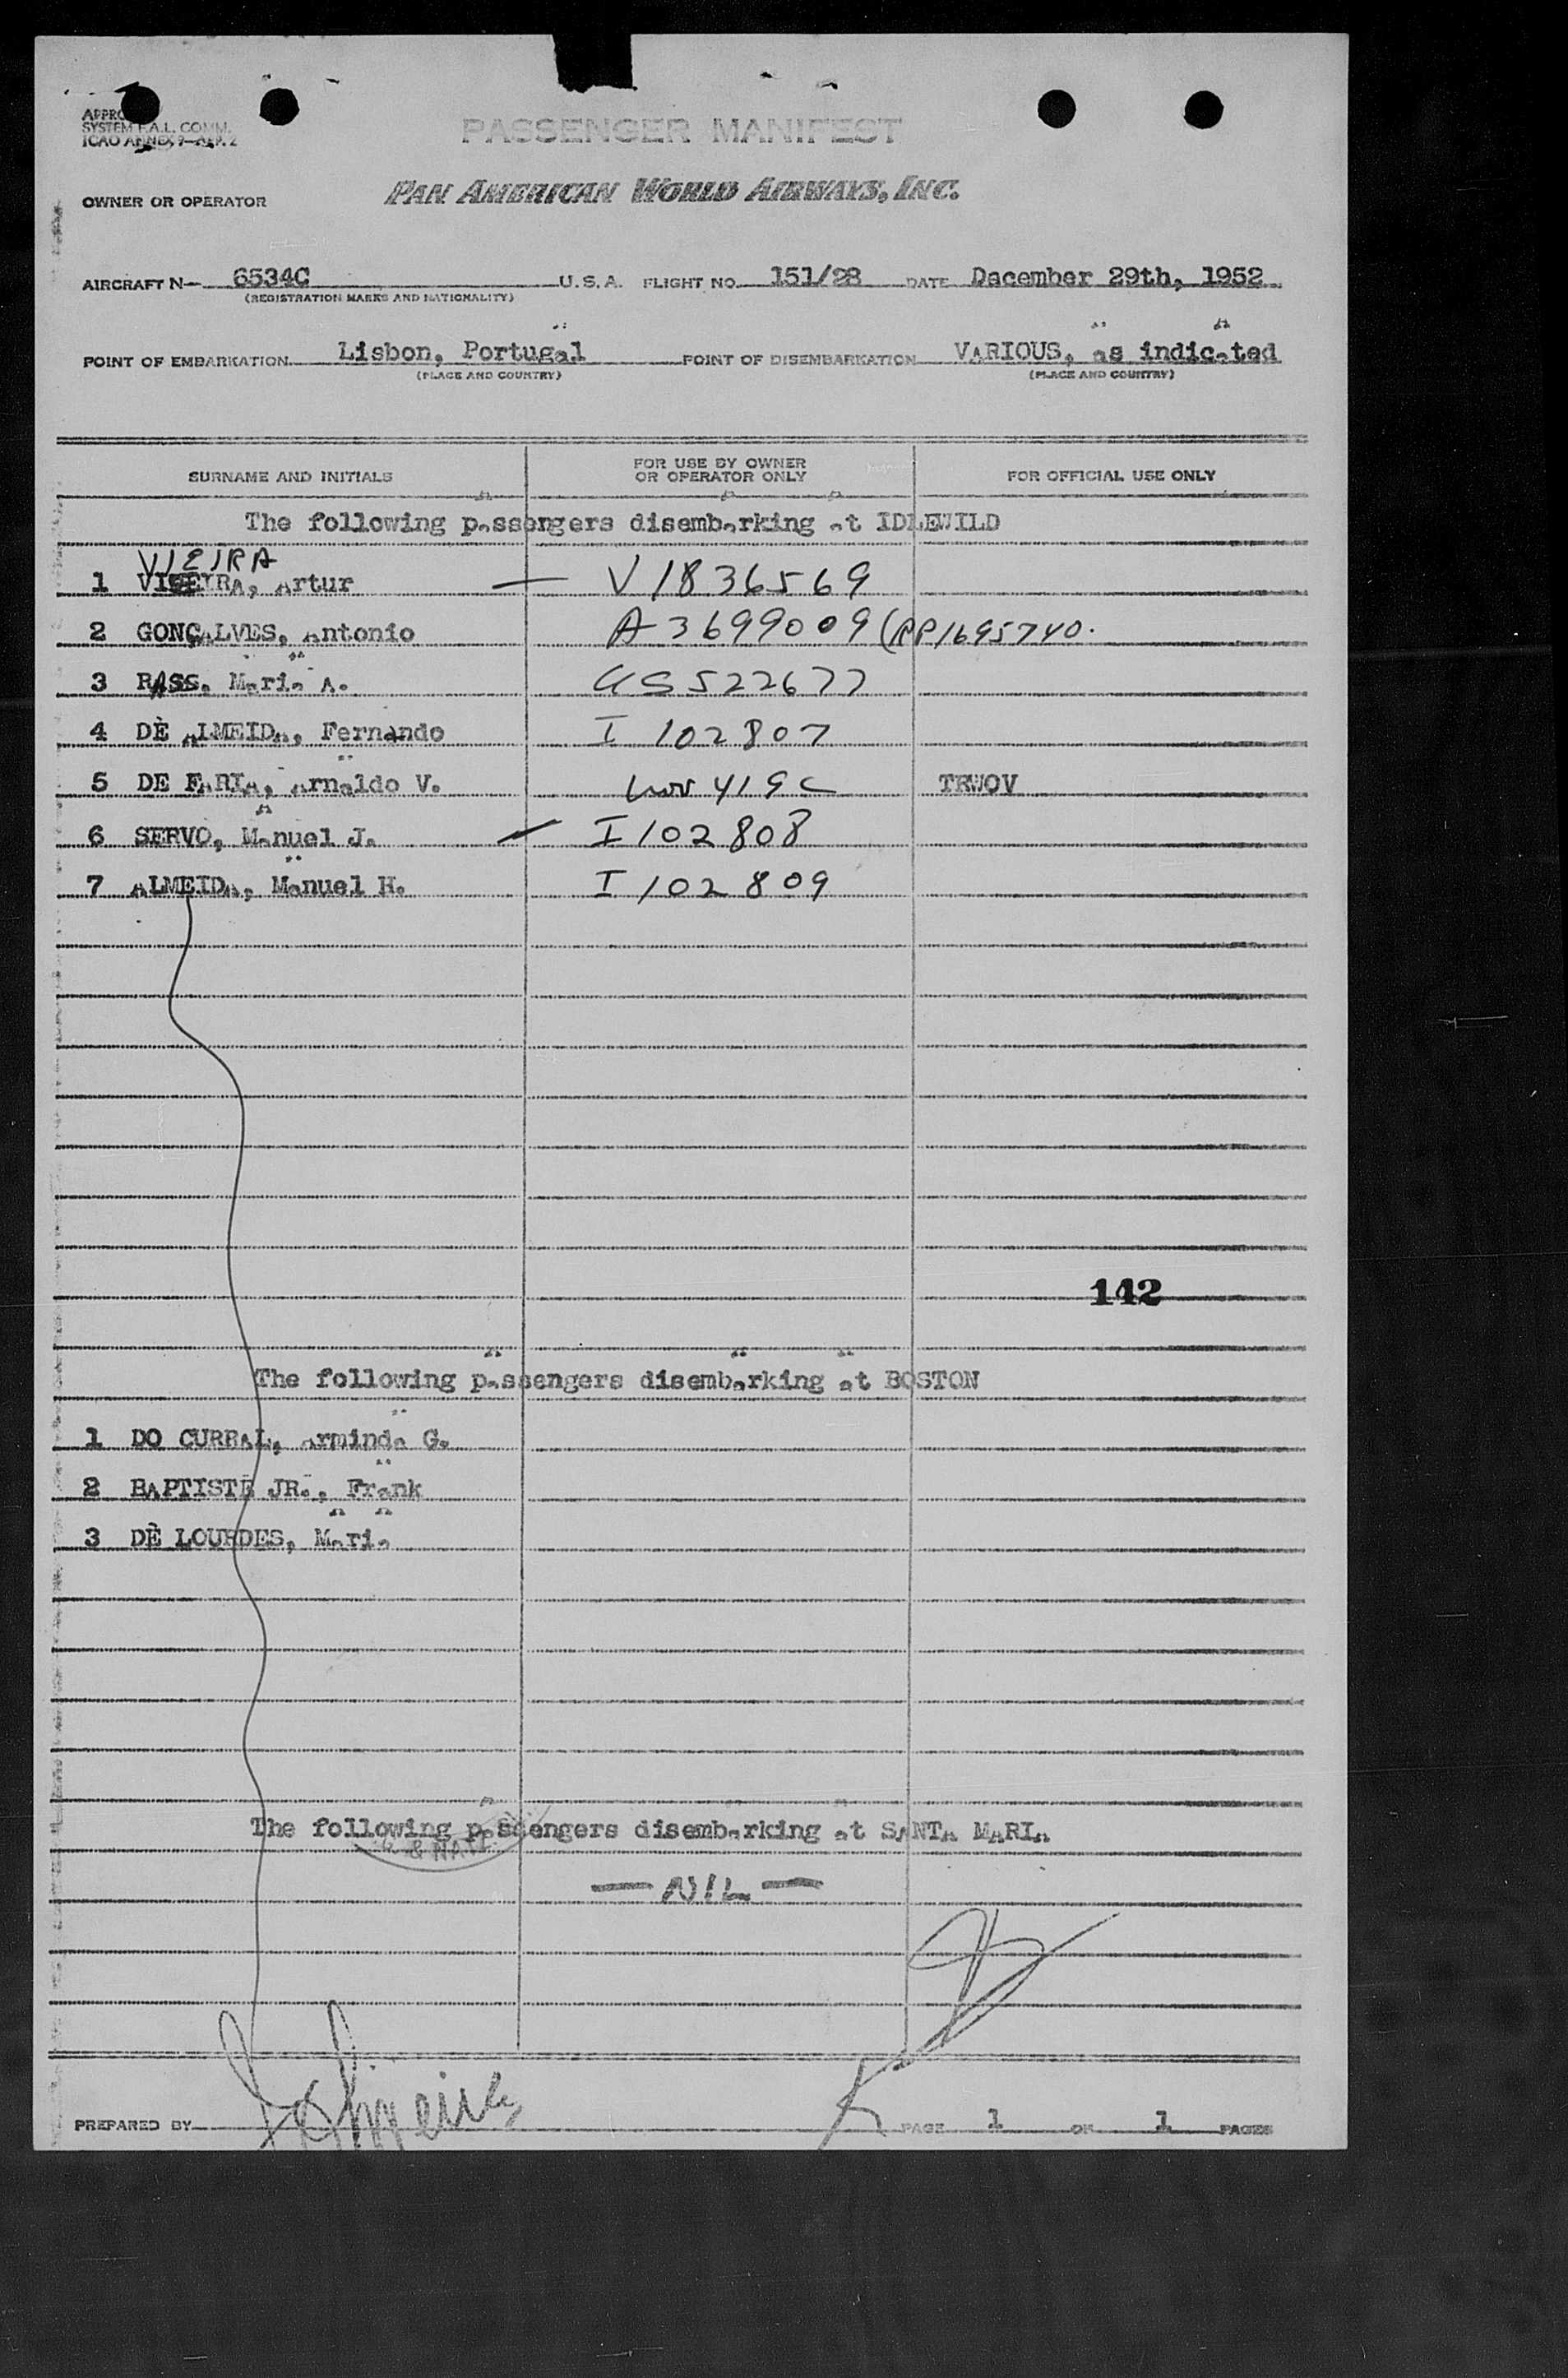 SYSTEM F.A.L. COMM.
ICAO ANNEX 9—APP. 2
PASSENGER MANIFEST
OWNER OR OPERATOR PAN AMERICAN WORLD AIRWAYS, INC.
AIRCRAFT N— 6534C U.S.A. FLIGHT NO. 151/28 DATE December 29th, 1952
(REGISTRATION MARKS AND NATIONALITY)
POINT OF EMBARKATION Lisbon, Portugal POINT OF DISEMBARKATION VARIOUS, as indicated
(PLACE AND COUNTRY) (PLACE AND COUNTRY)
SURNAME AND INITIALS FOR USE BY OWNER OR OPERATOR ONLY FOR OFFICIAL USE ONLY
The following passengers disembarking at IDLEWILD
VIEIRA
1 VIEIRA, Artur — V1836569
2 GONÇALVES, Antonio A3699009 (RP1695740.
3 RASS. Maria A. US522677
4 DE ALMEIDA, Fernando I 102807
5 DE FARIA, Arnaldo V. 419 TRWOV
6 SERVO, Manuel J. I 102808
7 ALMEIDA, Manuel H. I 102809
142
The following passengers disembarking at BOSTON
1 DO CURRAL, Arminda G.
2 BAPTISTE JR., Frank
3 DE LOURDES, Maria
The following passengers disembarking at SANTA MARIA
& NAT
— NIL —
PREPARED BY PAGE 1 OF 1 PAGES